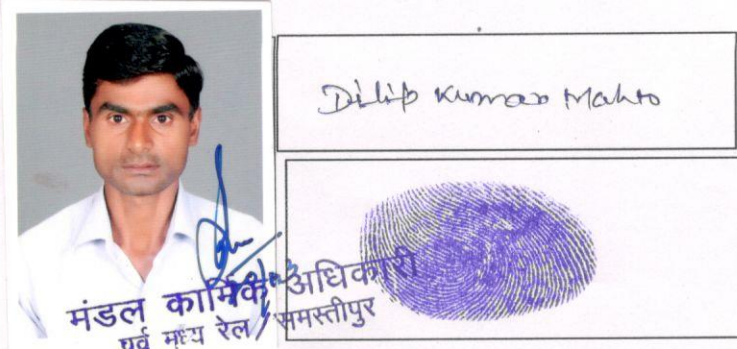 Dilip Kumar Mahto
मंडल कार्मिक अधिकारी
पूर्व मध्य रेल / समस्तीपुर